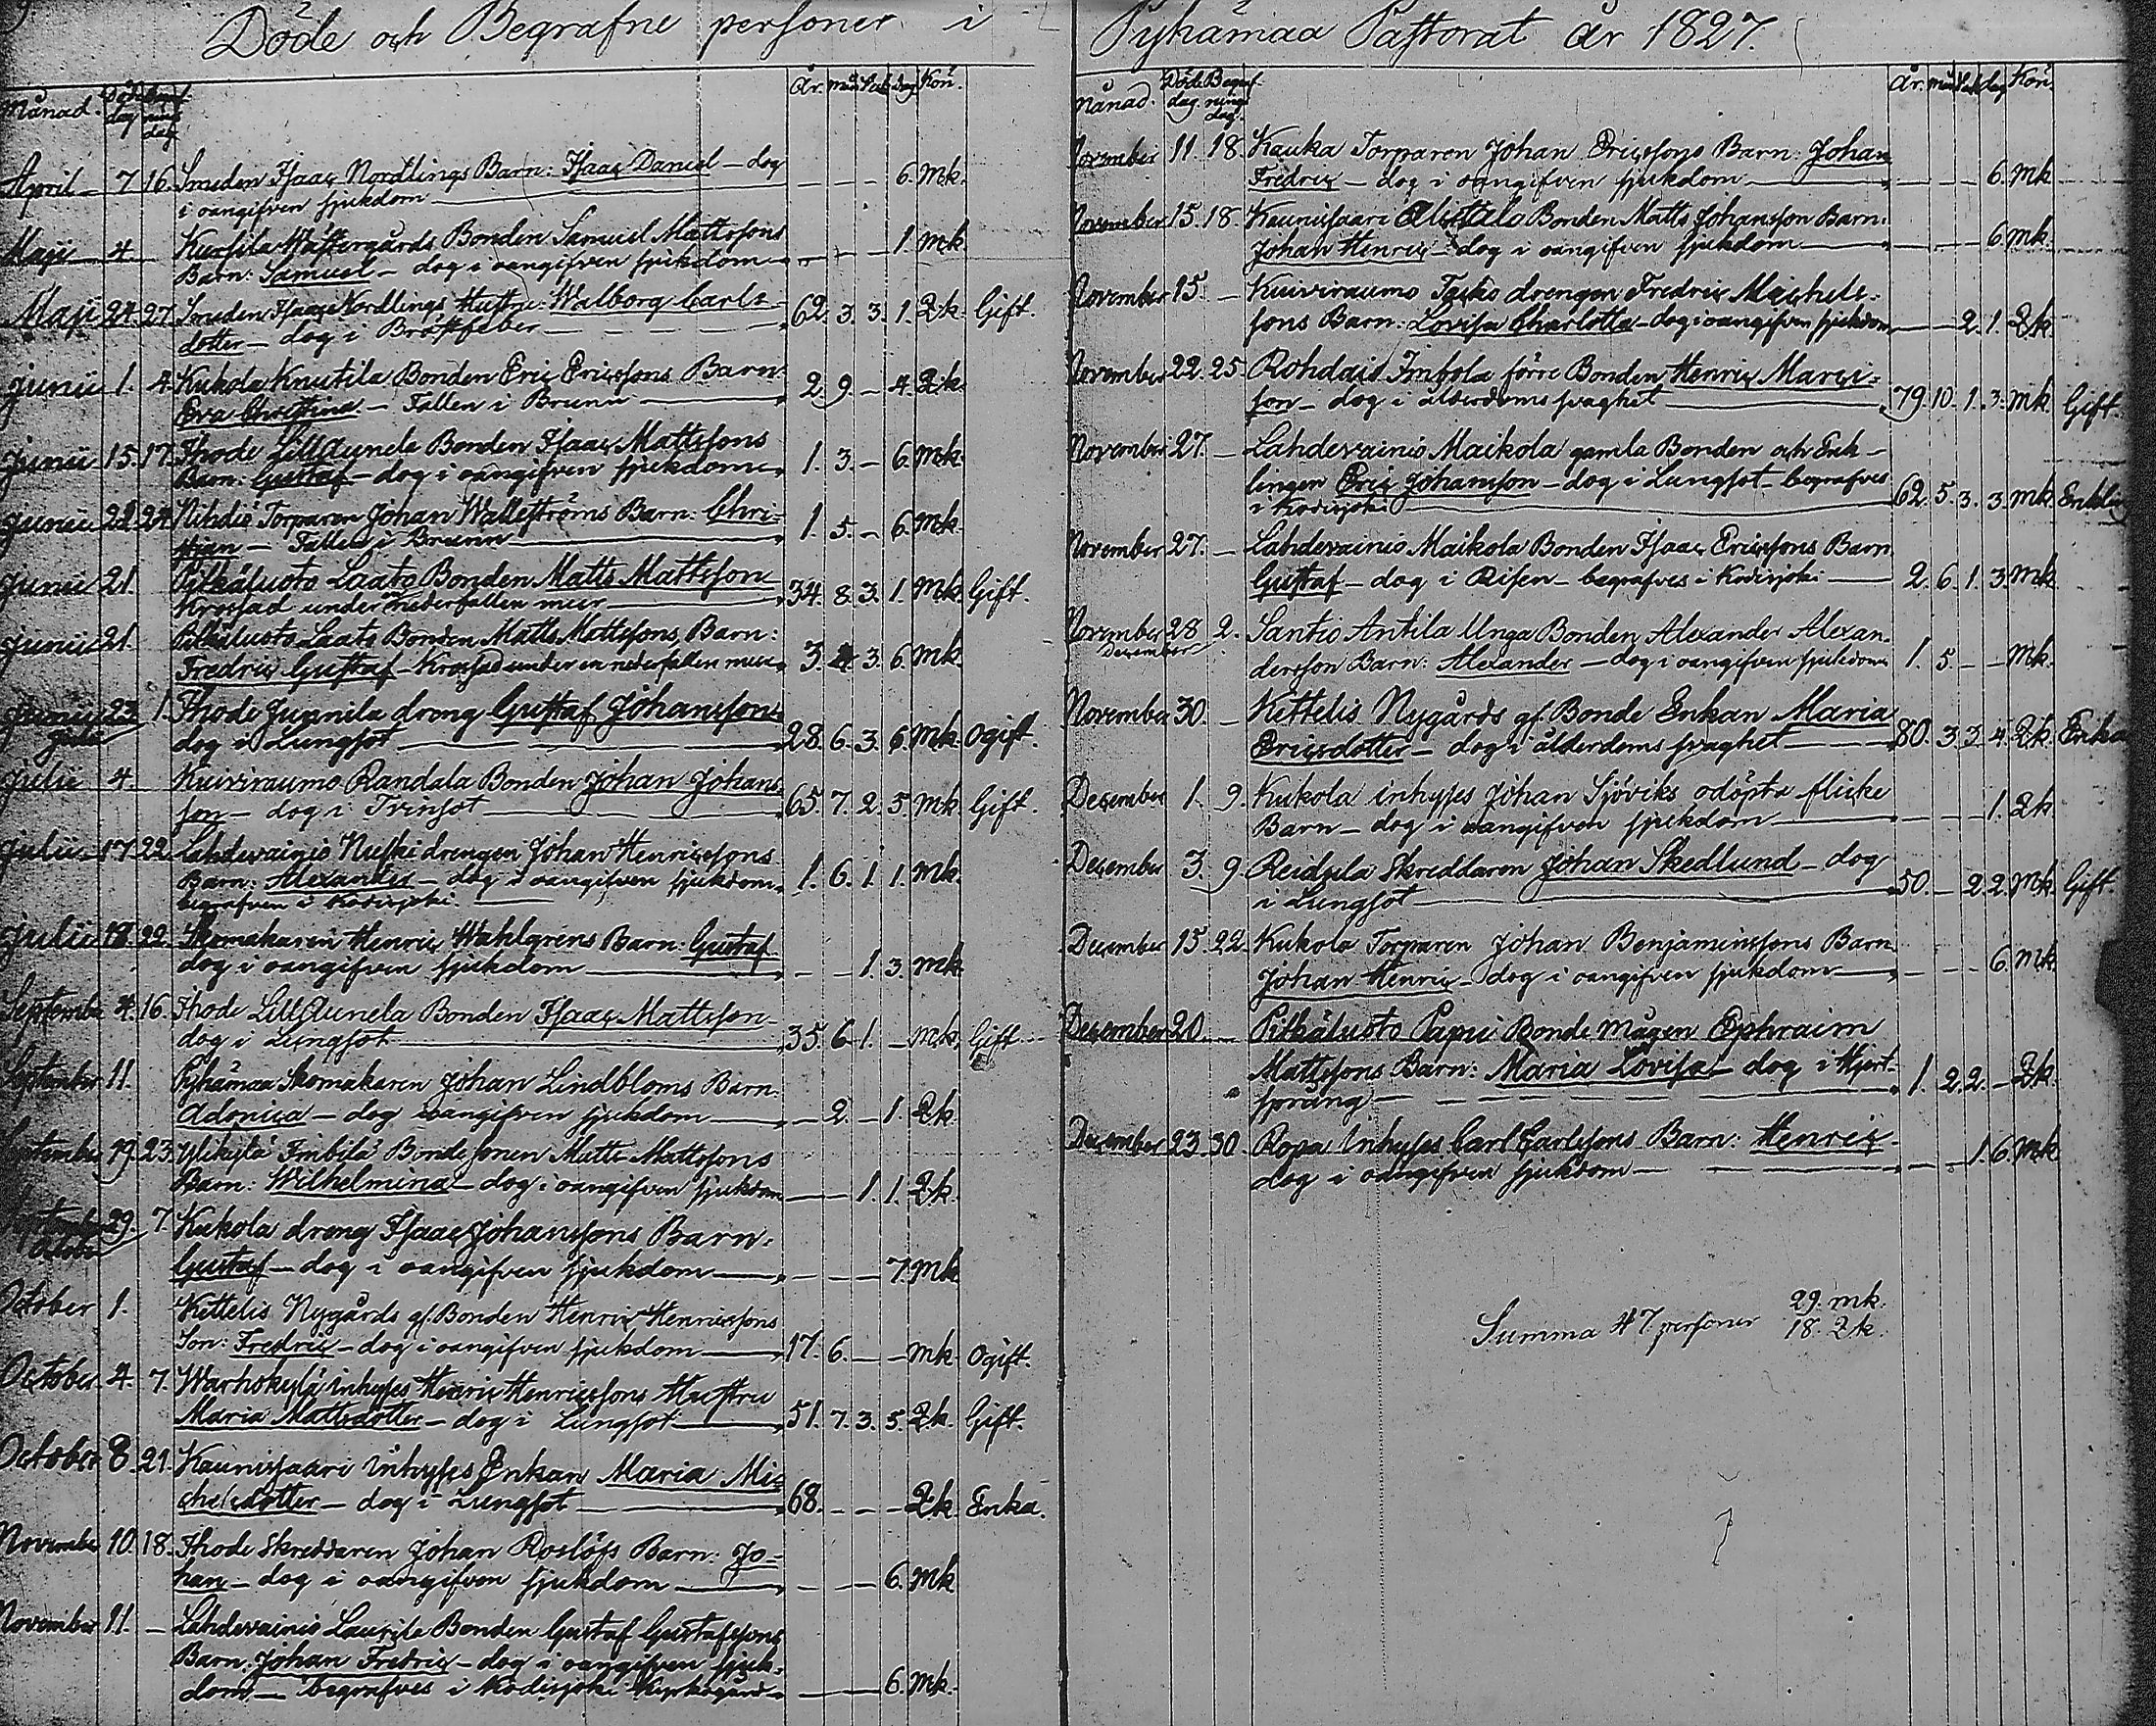 Döde och Begrafne personer i Pyhämaa Pastorat år 1827.
Månad. Död dag Begrafnings dag. År. mån. Vek. dag Kön.
April 7 16. Smeden Isaac Nordlings Barn: Isaac Daniel — dog
i oangifven sjukdom — — — 6. Mk.
Maji 4. Bonden Samuel Mattssons
Barn: Samuel — dog i oangifven sjukdom — — — 1. Mk.
Maji 24. 27. Smeden Isaac Nordlings Hustru: Walborg Carls-
dotter — dog i Bröstfeber 62. 3. 3. 1. Qk. Gift.
Junii 1. 4. Kukola Knutila Bonden Eric Ericssons Barn:
Eva Christina — Fallen i Brunn 2. 9. — 4. Qk.
Junii 15. 17. Ihode Lill Aunela Bonden Isaac Mattssons
Barn: Gustaf — dog i oangifven sjukdom 1. 3. — 6. Mk.
Junii 22. 24. Nihdiö Torparen Johan Wallströms Barn: Chri-
stian — Fallen i Brunn 1. 5. — 6. Mk.
Junii 21. Pitkäluoto Laato Bonden Matts Mattsson
Krossad under nederfallen mur 34. 8. 3. 1. Mk. Gift.
Junii 21. Pitkäluoto Laato Bonden Matts Mattssons Barn:
Fredric Gustaf — Krossad under en nederfallen mur 3. 4. 3. 6. Mk.
Junii 23. 1. Ihode Junnila dreng Gustaf Johansson
Julii dog i Lungsot 28. 6. 3. 6. Mk. Ogift.
Julii 4. Kuiviraumo Randala Bonden Johan Johans-
son — dog i Tvinsot 65. 7. 2. 5. Mk. Gift.
Julii 17 22. Lahdevainio Nuski drengen Johan Henricssons
Barn: Alexander — dog i oangifven sjukdom, 1. 6. 1. 1. Mk.
begrafven i Kodisjoki
Julii 18. 22. Skomakaren Henric Wahlgrens Barn: Gustaf
dog i oangifven sjukdom — — 1. 3. Mk.
September 4. 16. Ihode Lill Aunela Bonden Isaac Mattsson
dog i Lungsot 35. 6. 1. — Mk. Gift
September 11. Pyhämaa Skomakaren Johan Lindbloms Barn:
Adonica — dog i oangifven sjukdom — 2. — 1. Qk.
September 19. 23. Ylikylä Imbilä Bonde sonen Matts Mattssons
Barn: Wilhelmina — dog i oangifven sjukdom — — 1. 1. Qk.
September 29. 7. Kukola dreng Isaac Johanssons Barn:
October Gustaf — dog i oangifven sjukdom — — — 7. Mk
October 1. Kettelis Nygårds gf. Bonden Henric Henricssons
Son: Fredric — dog i oangifven sjukdom 17. 6. — — Mk. Ogift.
October 4. 7. Warhokylä inhyses Henric Henricssons Hustru
Maria Mattsdotter — dog i Lungsot 51. 7. 3. 5. Qk. Gift.
October 8. 21. Kaunissaari inhyses Enkan Maria Mi-
chelsdotter — dog i Lungsot 68. — — — Qk. Enka.
November 10. 18. Ihode Skreddaren Johan Roslöfs Barn: Jo-
han — dog i oangifven sjukdom — — — 6. Mk
November 11. — Lahdevainio Laurila Bonden Gustaf Gustafssons
Barn: Johan Fredric — dog i oangifven sjuk-
dom — begrafves i Kodisjoki Kyrkogård — — — 6. Mk.
Månad. Döds dag. Begrafnings dag. År. mån Vek dag Kön
November 11. 18. Kauka Torparen Johan Ericssons Barn: Johan
Fredric — dog i oangifven sjukdom — — — 6. Mk
November 15. 18. Kaunissaari Alistalo Bonden Matts Johansson Barn:
Johan Henric — dog i oangifven sjukdom — — — 6. Mk.
November 15. — Kuiviraumo drengen Fredric Michels-
sons Barn: Lovisa Charlotta — dog i oangifven sjukdom — — 2. 1. Qk
November 22. 25. Rohdais Imbola förre Bonden Henric Marci-
son — dog i ålderdoms svaghet 79. 10. 1. 3. Mk Gift.
November 27. — Lahdevainio Maikola gamla Bonden och Enk-
lingen Eric Johansson — dog i Lungsot — begrafves
i Kodisjoki 62. 5. 3. 3. Mk Enkling
November 27. — Lahdevainio Maikola Bonden Isaac Ericssons Barn
Gustaf — dog i Risen — begrafves i Kodisjoki — 2. 6. 1. 3. Mk
November 28 2. Santio Antila Unga Bonden Alexander Alexan-
December dersson Barn: Alexander — dog i oangifven sjukdom 1. 5. — — Mk.
November 30. — Kettelis Nygårds gf. Bonde Enkan Maria
Ericsdotter — dog i ålderdoms svaghet 80. 3. 3. 4. Qk. Enka
December 1. 9. Kukola inhyses Johan Sjöviks odöpta flicke
Barn — dog i oangifven sjukdom — — — 1. Qk
December 3. 9. Reidila Skreddaren Johan Skedlund — dog
i Lungsot 50. — 2. 2. Mk. Gift.
December 15. 22. Kukola Torparen Johan Benjaminssons Barn
Johan Henric — dog i oangifven sjukdom — — — 6. Mk
December 20. — Pitkäluoto Papu Bonde mågen Ephraim
Mattssons Barn: Maria Lovisa — dog i Hjert-
språng 1. 2. 2. — Qk.
December 23. 30. Ropa Inhyses Carl Carlssons Barn: Henric
dog i oangifven sjukdom — — 1. 6. Mk
Summa 47 personer 29. mk.
18. Qk.